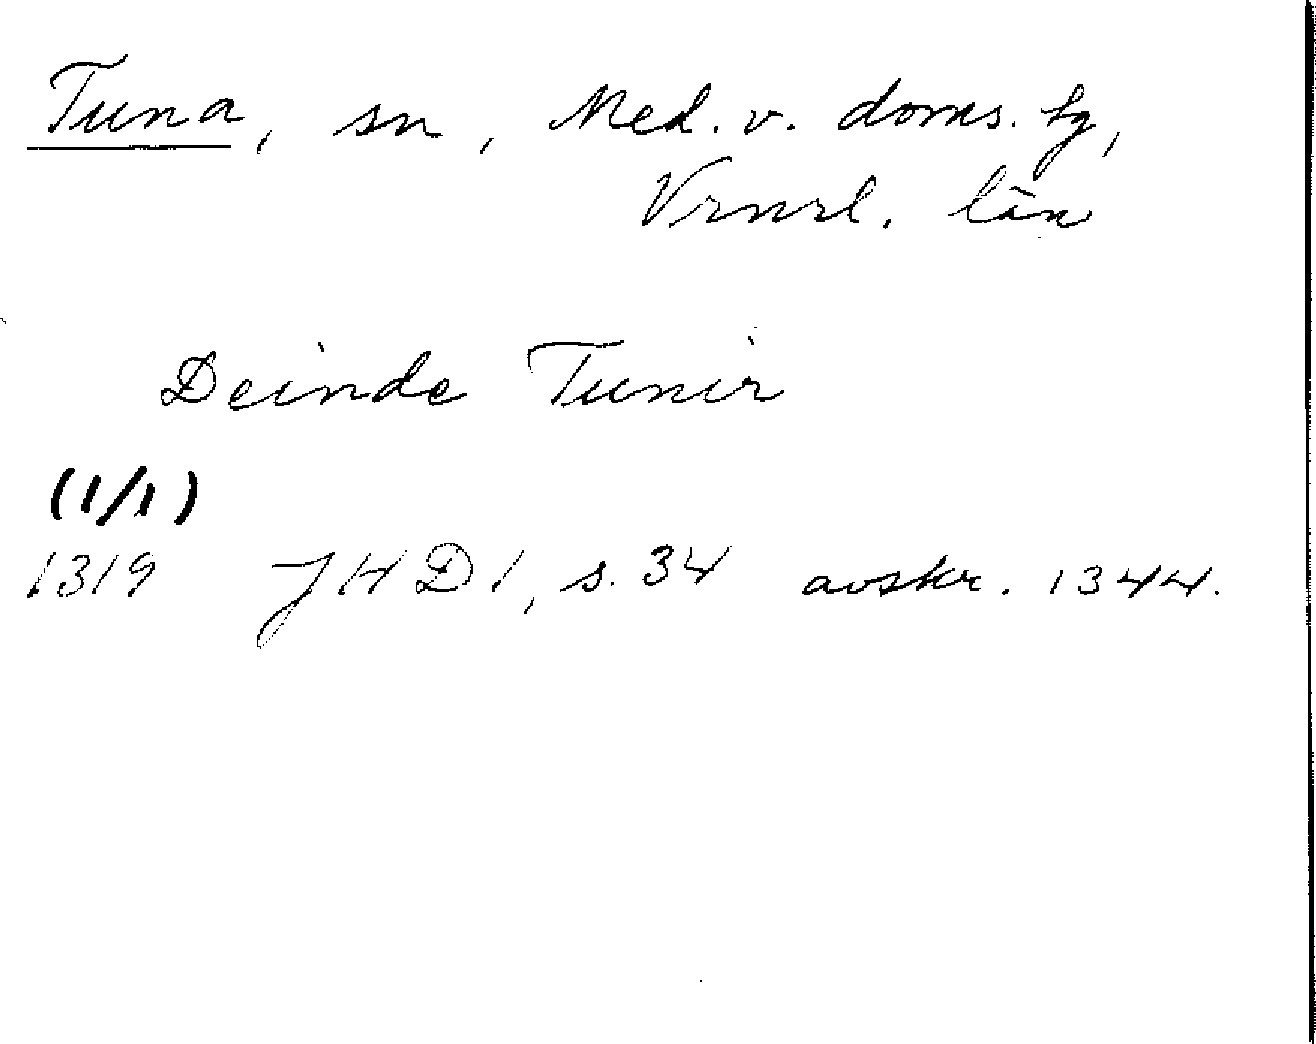 Tuna, sn, Med. v. doms. tg,
Vrnrl. län
Deinde Tunir
(1/1)
1319 JHD 1, s. 34 avskr. 1344.